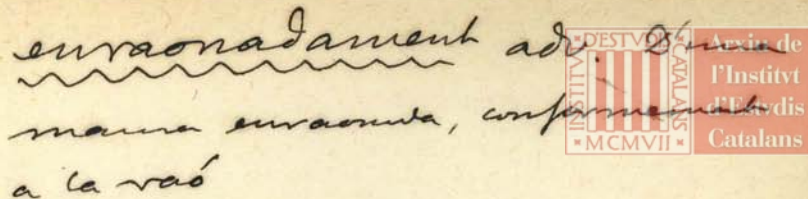 enraonadament adv. D'una
manera enraonada, conformement
a la raó
INSTITVT D'ESTVDIS CATALANS
MCMVII
Arxiu de
l'Institvt
d'Estvdis
Catalans